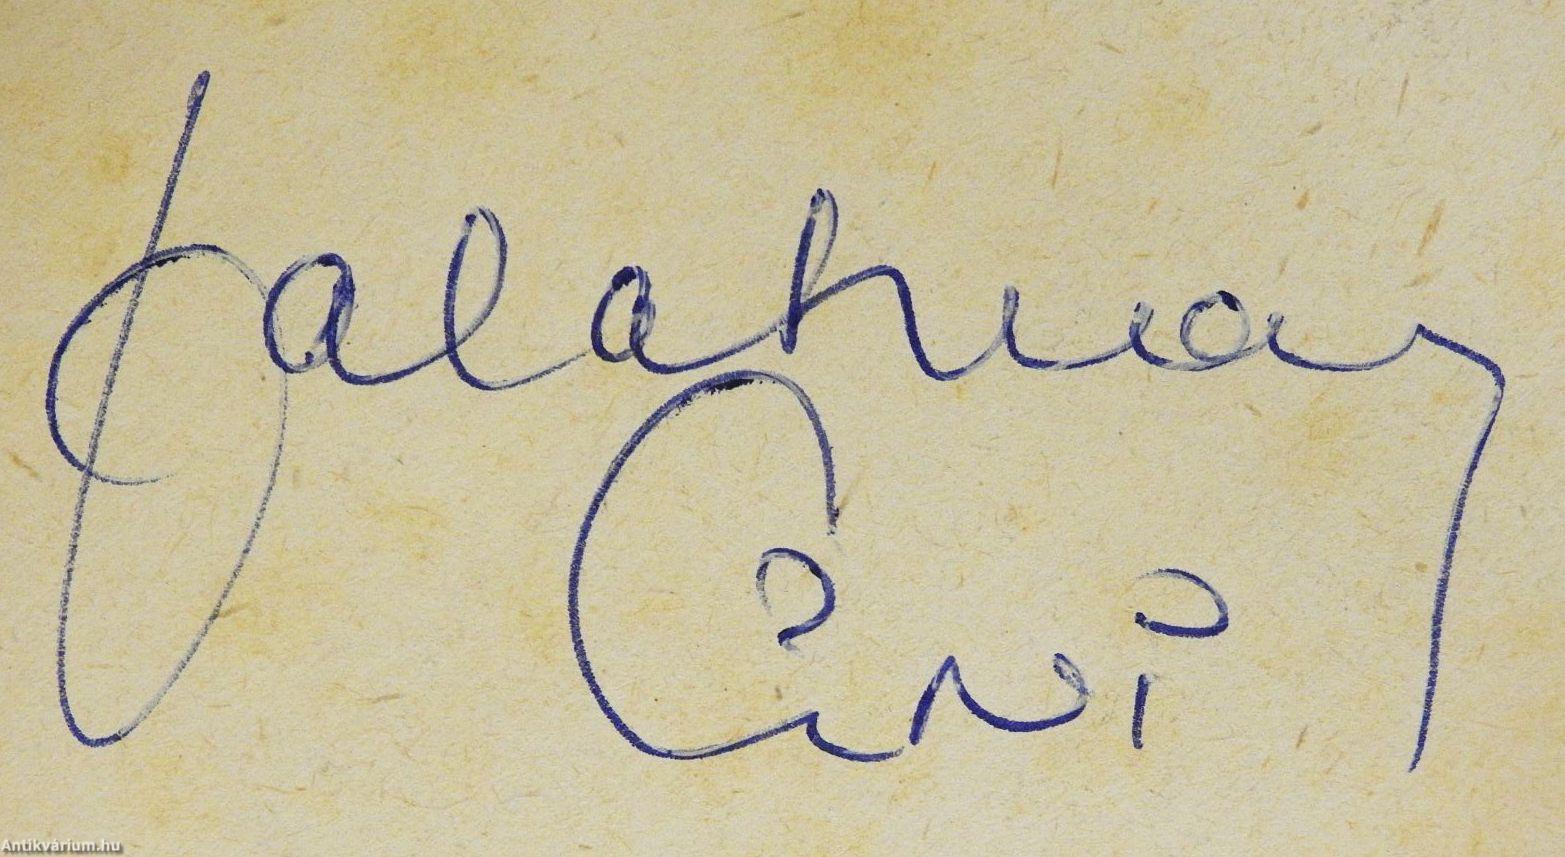 Zalatnay
Cini
Antikvárium.hu